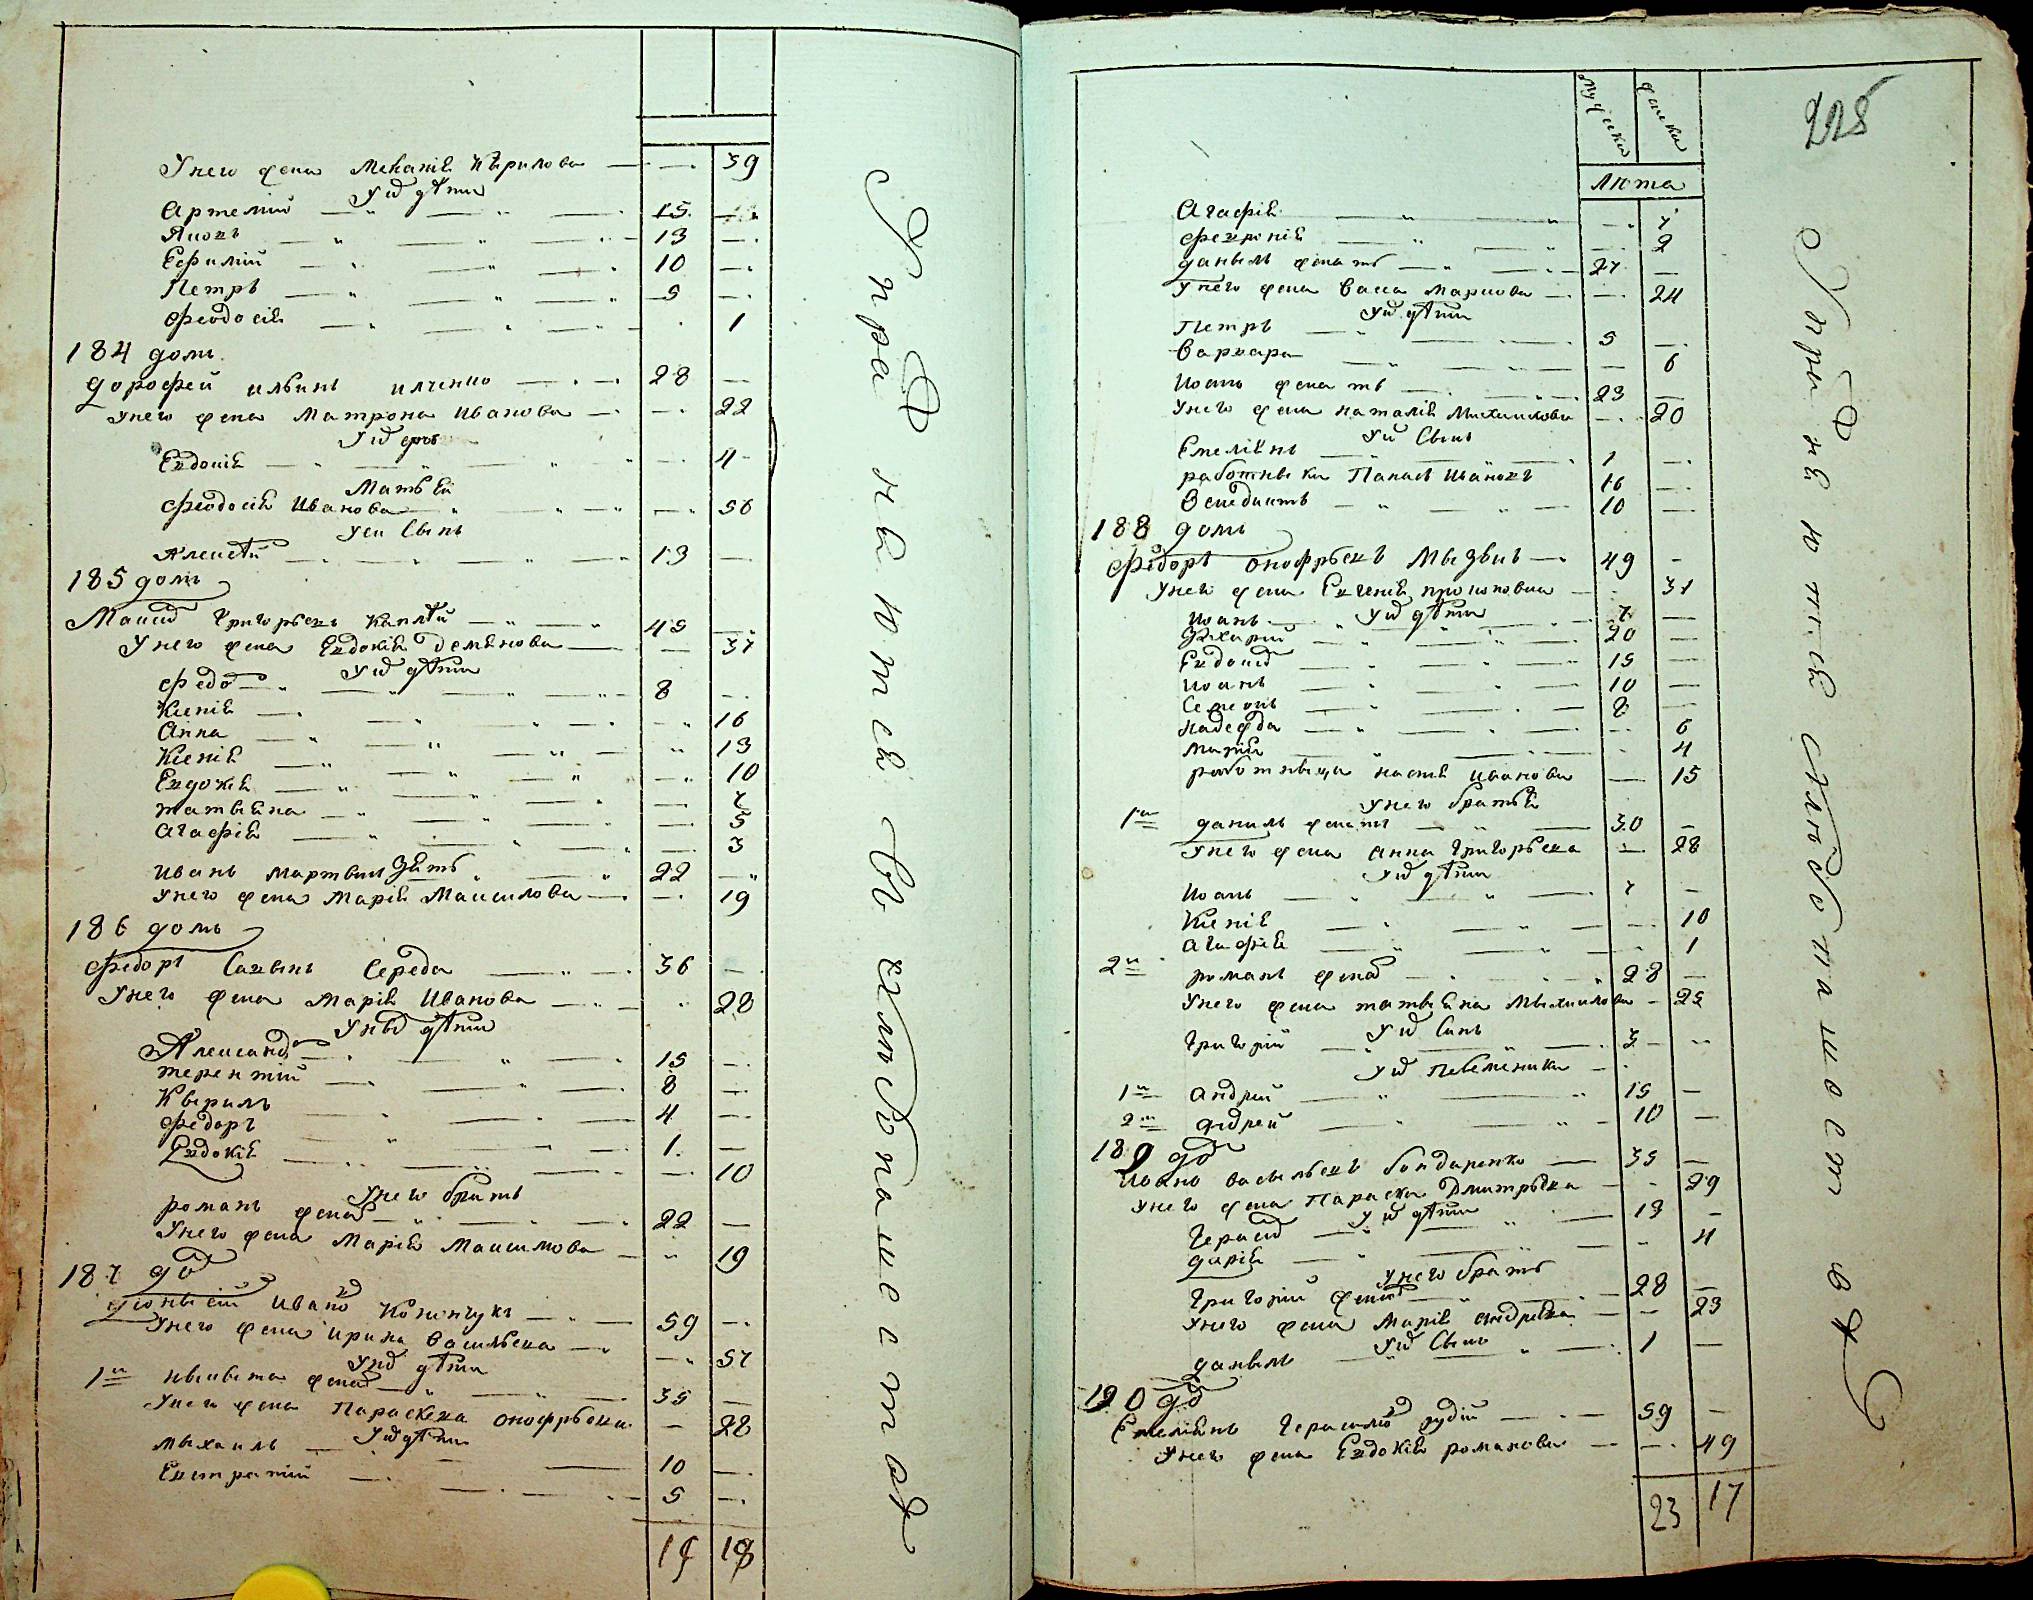 У него жена Меланія Кирилова — — 39
У их дѣти
Артемій — 15 —
Яковъ — 13 —
Ефимій — 10 —
Петръ — 5 —
Феодосія — 1
184 домъ
Дорофей Ильинъ Илченко — 28 —
У него жена Матрона Иванова — — 22
У их дочь
Евдокія — — 4
Мать ей
Феодосія Иванова — — 56
У ей Сынъ
Алексѣй — 13 —
185 домъ
Максим Григорьевъ — 45 —
У него жена Евдокія Демянова — — 37
У их дѣти
Федо — 8 —
Ксенія — — 16
Анна — — 13
Ксенія — — 10
Евдокія — — 7
Татьяна — — 5
Агафія — — 3
Иванъ Мартвин Зять — 22 —
У него жена Марія Максимова — — 19
186 домъ
Федоръ Савинъ Середа — 36 —
У него жена Марія Иванова — 28
У них дѣти
Александ — 15 —
Терентій — 8 —
Кверилъ — 4 —
Федоръ — 1 —
Евдокія — — 10
У него братъ
Романъ женат — 22 —
У него жена Марія Максимова — 19
187 до
Дионисій Ивано — 59 —
У него жена Ирина Васильева — — 57
У их дѣти
1й женат — 35 —
У него жена Параскева Онофрьева — 28
У их дѣти
Мыхаилъ — 10 —
Евстратій — 5 —
19 18
Управ на ютев въ ехлѣбпашества
мужеска женска
225
Лѣта
Агафія — — 7
Февронія — — 2
Данылъ женатъ — 27 —
У него жена Васса Маркова — — 24
У их дѣти
Петръ — 5 —
Варвара — — 6
Иоанъ женатъ — 23 —
У него жена Наталія Михаилова — 20
У их Сынъ
Емеліянъ — 1 —
Работныки Панасъ Ивановъ 16 —
Бенедиктъ — 10 —
188 домъ
Федоръ Онофрьевъ — 49 —
У него жена Евгенія Прокоповна — 37
У их дѣти
Иоанъ — 7 —
Захарій — 20 —
Евдоким — 15 —
Иоанъ — 10 —
Семенъ — 8 —
Надежда — — 6
Марія — 4
Работныца Настя Иванова — 15
У него братья
1й Данилъ женатъ — 30 —
У него жена Анна Григорьева — 28
У их дѣти
Иоанъ — 7 —
Ксенія — — 10
Агафія — — 1
2й Романъ жена — 28 —
У него жена Татьяна Мыхаилова — 25
У их Синъ
Григорій — 3 —
У их Племеники —
1й Андрій — 15 —
2й Андрей — 10 —
189 до
Ивано Васильевъ Бондаренко — 35 —
У него жена Параска Дмитрьева — 29
У их дѣти
Герасим — 13 —
Дарія — — 4
У него братъ
Григорій женат — 28 —
У него жена Марія Андрѣева — 23
У их Сынъ
Данылъ — 1 —
190 до
Емеліянъ Герасимо — 59 —
У него жена Евдокія Романова — 49
23 17